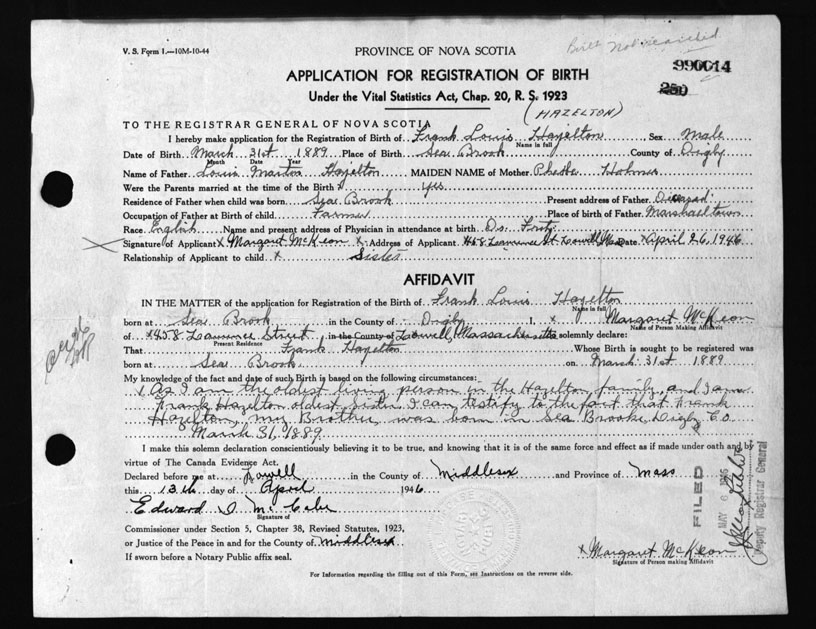 V. S. Form 1.—10M-10-44
PROVINCE OF NOVA SCOTIA
Birth Not searched.
990014
250
APPLICATION FOR REGISTRATION OF BIRTH
Under the Vital Statistics Act, Chap. 20, R. S. 1923
(HAZELTON)
TO THE REGISTRAR GENERAL OF NOVA SCOTIA
I hereby make application for the Registration of Birth of Frank Louis Hazelton Sex Male
Name in full
Date of Birth March 31st 1889 Place of Birth Sea Brook County of Digby
Month Date Year
Name of Father Louis Martin Hazelton MAIDEN NAME of Mother Phebe Holmes
Were the Parents married at the time of the Birth x yes
Residence of Father when child was born Sea Brook Present address of Father Deceased
Occupation of Father at Birth of child Farmer Place of Birth of Father Marshalltown
Race English Name and present address of Physician in attendance at birth Dr. 
Signature of Applicant x Margaret McKeon x Address of Applicant 458 Lawrence St Lowell Mass Date x April 26, 1946
Relationship of Applicant to child x Sister
AFFIDAVIT
IN THE MATTER of the application for Registration of the Birth of Frank Louis Hazelton
Name in full
born at Sea Brook in the County of Digby I, x Margaret McKeon
Name of Person Making Affidavit
of x 458 Lawrence Street in the County of Lowell, Massachusetts solemnly declare:
Present Residence
That Frank Hazelton Whose Birth is sought to be registered was
born at Sea Brook on March 31st 1889
My knowledge of the fact and date of such Birth is based on the following circumstances:
As I am the oldest living person in the Hazelton family, and I am
Frank Hazelton oldest sister I can testify to the fact that Frank
Hazelton, my Brother, was born in Sea Brooke, Digby Co
March 31, 1889.
I make this solemn declaration conscientiously believing it to be true, and knowing that it is of the same force and effect as if made under oath and by
virtue of The Canada Evidence Act.
Declared before me at Lowell in the County of Middlesex and Province of Mass
this 13th day of April 1946
Edward McCabe
Signature of
Commissioner under Section 5, Chapter 38, Revised Statutes, 1923,
or Justice of the Peace in and for the County of Middlesex
If sworn before a Notary Public affix seal.
x Margaret McKeon
Signature of Person making Affidavit
For Information regarding the filling out of this Form, see Instructions on the reverse side.
FILED
MAY 6
Deputy Registrar General